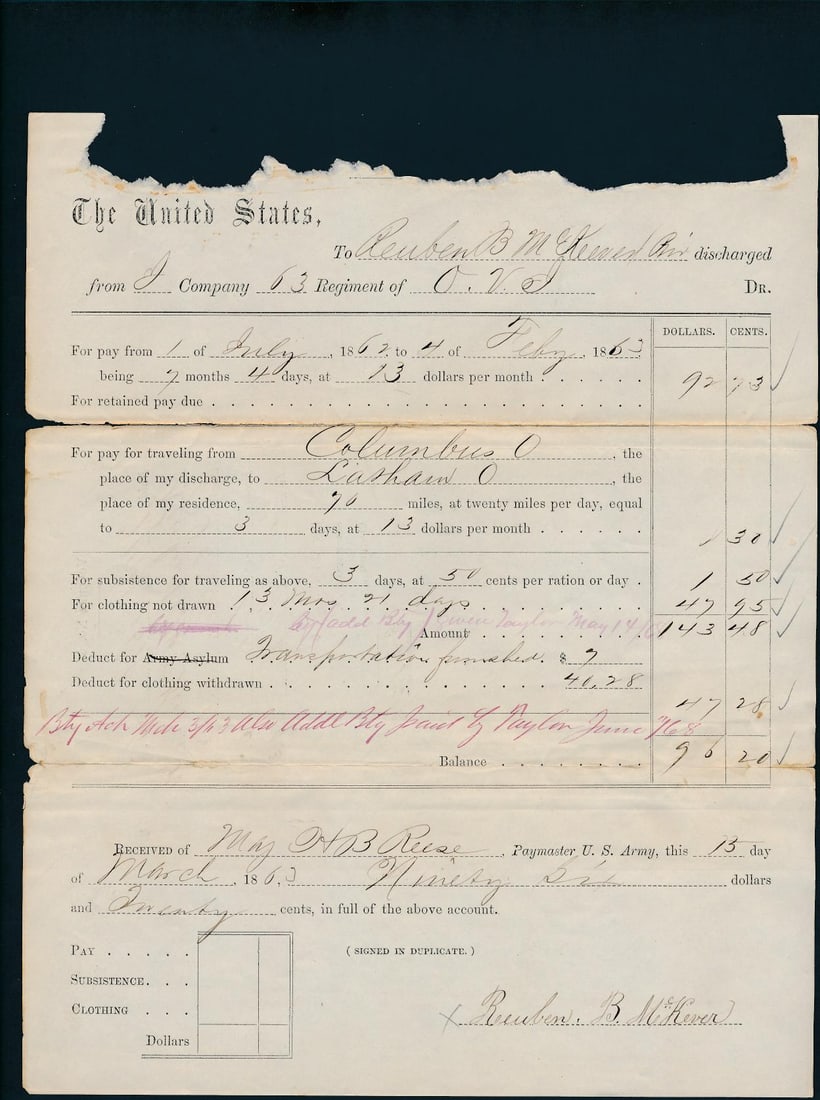 The United States,
To Reuben B McKever Priv discharged
from I Company 63 Regiment of O. V. I DR.
DOLLARS. CENTS.
For pay from 1 of July, 1862, to 4 of Feby, 1863,
being 7 months 4 days, at 13 dollars per month 92 73
For retained pay due
For pay for traveling from Columbus O, the
place of my discharge, to Latham O, the
place of my residence, 70 miles, at twenty miles per day, equal
to 3 days, at 13 dollars per month 1 30
For subsistence for traveling as above, 3 days, at 50 cents per ration or day 1 50
For clothing not drawn 13 Mos 21 days 47 95
addl Bty Taylor May 14
Amount 143 48
Deduct for Army Asylum Transportation furnished. $ 7
Deduct for clothing withdrawn 40.28
47 28
Bty Act Mch 3/63 Also Addl Bty paid by Taylor June /68
Balance 96 20
RECEIVED OF Maj H B Reese, Paymaster U. S. Army, this 13 day
of March, 1863, Ninety Six dollars
and Twenty cents, in full of the above account.
PAY
(SIGNED IN DUPLICATE.)
SUBSISTENCE.
CLOTHING
x Reuben. B. McKever
Dollars